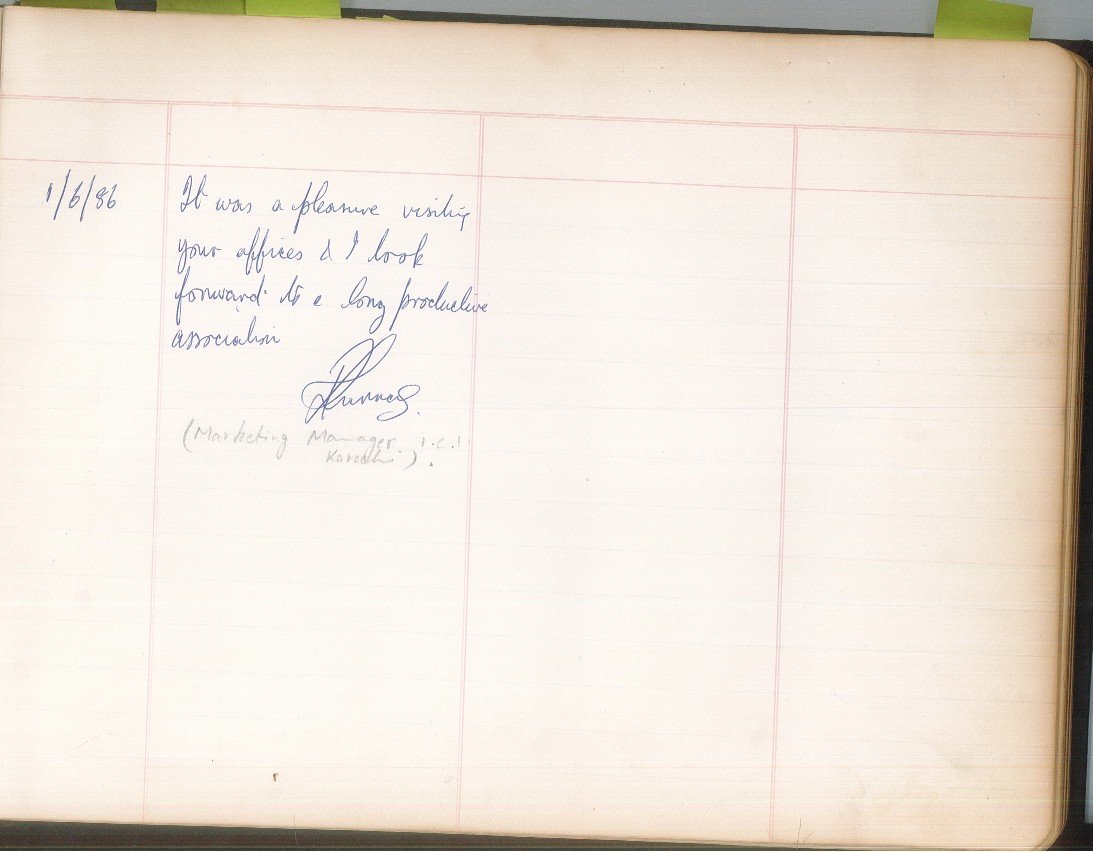 1/6/86 It was a pleasure visiting
your offices & I look
forward to a long productive
association
(Marketing Manager I.C.I
Karachi).